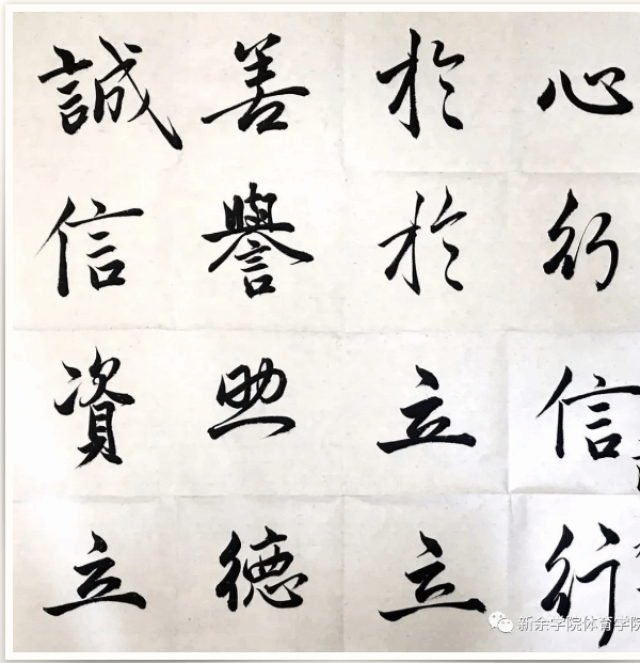 誠善於心
信譽於行
資助立信
立德立行
新余学院体育学院